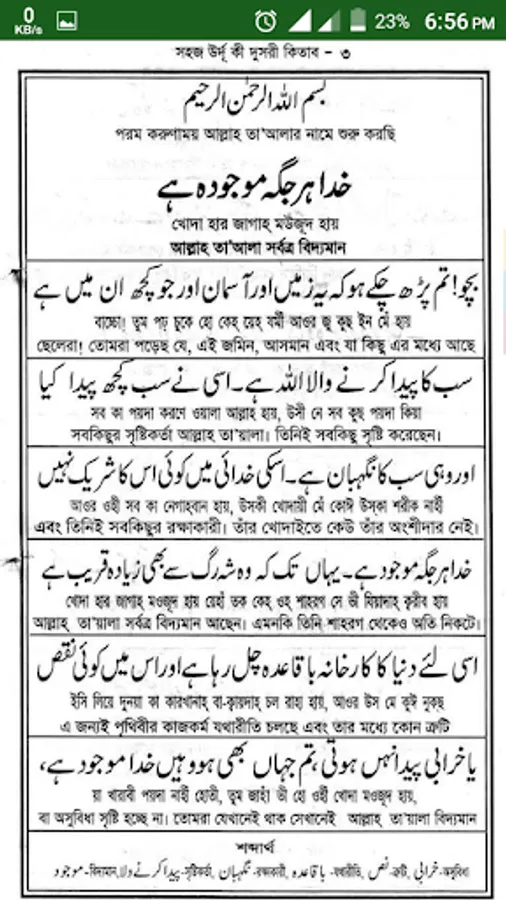 0
KB/s
23%
6:56 PM
সহজ উর্দূ কী দুসরী কিতাব - ৩
بسم اللہ الرحمٰن الرحیم
পরম করুণাময় আল্লাহ তা'আলার নামে শুরু করছি
خدا ہر جگہ موجود ہے
খোদা হার জাগাহ মউজুদ হায়
আল্লাহ তা'আলা সর্বত্র বিদ্যমান
بچو! تم پڑھ چکے ہو کہ یہ زمیں اور آسمان اور جو کچھ ان میں ہے
বাচ্চো! তুম পড় চুকে হো কেহ্ য়েহ্ যমী আওর জু কুছ ইন মেঁ হায়
ছেলেরা! তোমরা পড়েছ যে, এই জমিন, আসমান এবং যা কিছু এর মধ্যে আছে
سب کا پیدا کرنے والا اللہ ہے۔ اسی نے سب کچھ پیدا کیا
সব কা পয়দা করণে ওয়ালা আল্লাহ হায়, উসী নে সব কুছ পয়দা কিয়া
সবকিছুর সৃষ্টিকর্তা আল্লাহ তা'য়ালা। তিনিই সবকিছু সৃষ্টি করেছেন।
اور وہی سب کا نگہبان ہے۔ اسکی خدائی میں کوئی اس کا شریک نہیں
আওর ওহী সব কা নেগাহবান হায়, উসকী খোদায়ী মেঁ কোঈ উস্কা শরীক নাহীঁ
এবং তিনিই সবকিছুর রক্ষাকারী। তাঁর খোদাইতে কেউ তাঁর অংশীদার নেই।
خدا ہر جگہ موجود ہے۔ یہاں تک کہ وہ شہ رگ سے بھی زیادہ قریب ہے
খোদা হার জাগাহ মওজুদ হায় য়েহাঁ তক কেহ্ ওহ্ শাহরগ সে ভী যিয়াদাহ্ কৃরীব হায়
আল্লাহ্ তা'য়ালা সর্বত্র বিদ্যমান আছেন। এমনকি তিনি শাহরগ থেকেও অতি নিকটে।
اسی لئے دنیا کا کارخانہ باقاعدہ چل رہا ہے اور اس میں کوئی نقص
ইসি লিয়ে দুনয়া কা কারখানাহ্ বা-ক্বায়দাহ্ চল রাহা হায়, আওর উস মেঁ কুঈ নুক্ছ
এ জন্যই পৃথিবীর কাজকর্ম যথারীতি চলছে এবং তার মধ্যে কোন ত্রুটি
یا خرابی پیدا نہیں ہوتی، تم جہاں بھی ہو وہیں خدا موجود ہے،
য়া খারাবী পয়দা নাহীঁ হোতী, তুম জাহাঁ ভী হো ওহীঁ খোদা মওজুদ হায়,
বা অসুবিধা সৃষ্টি হচ্ছে না। তোমরা যেখানেই থাক সেখানেই আল্লাহ্ তা'য়ালা বিদ্যমান
শব্দার্থ
موجود-বিদ্যমান, پیدا کرنے والا-সৃষ্টিকর্তা, نگہبان-রক্ষাকারী, باقاعدہ-যথারীতি, نقص-ত্রুটি, خرابی-অসুবিধা